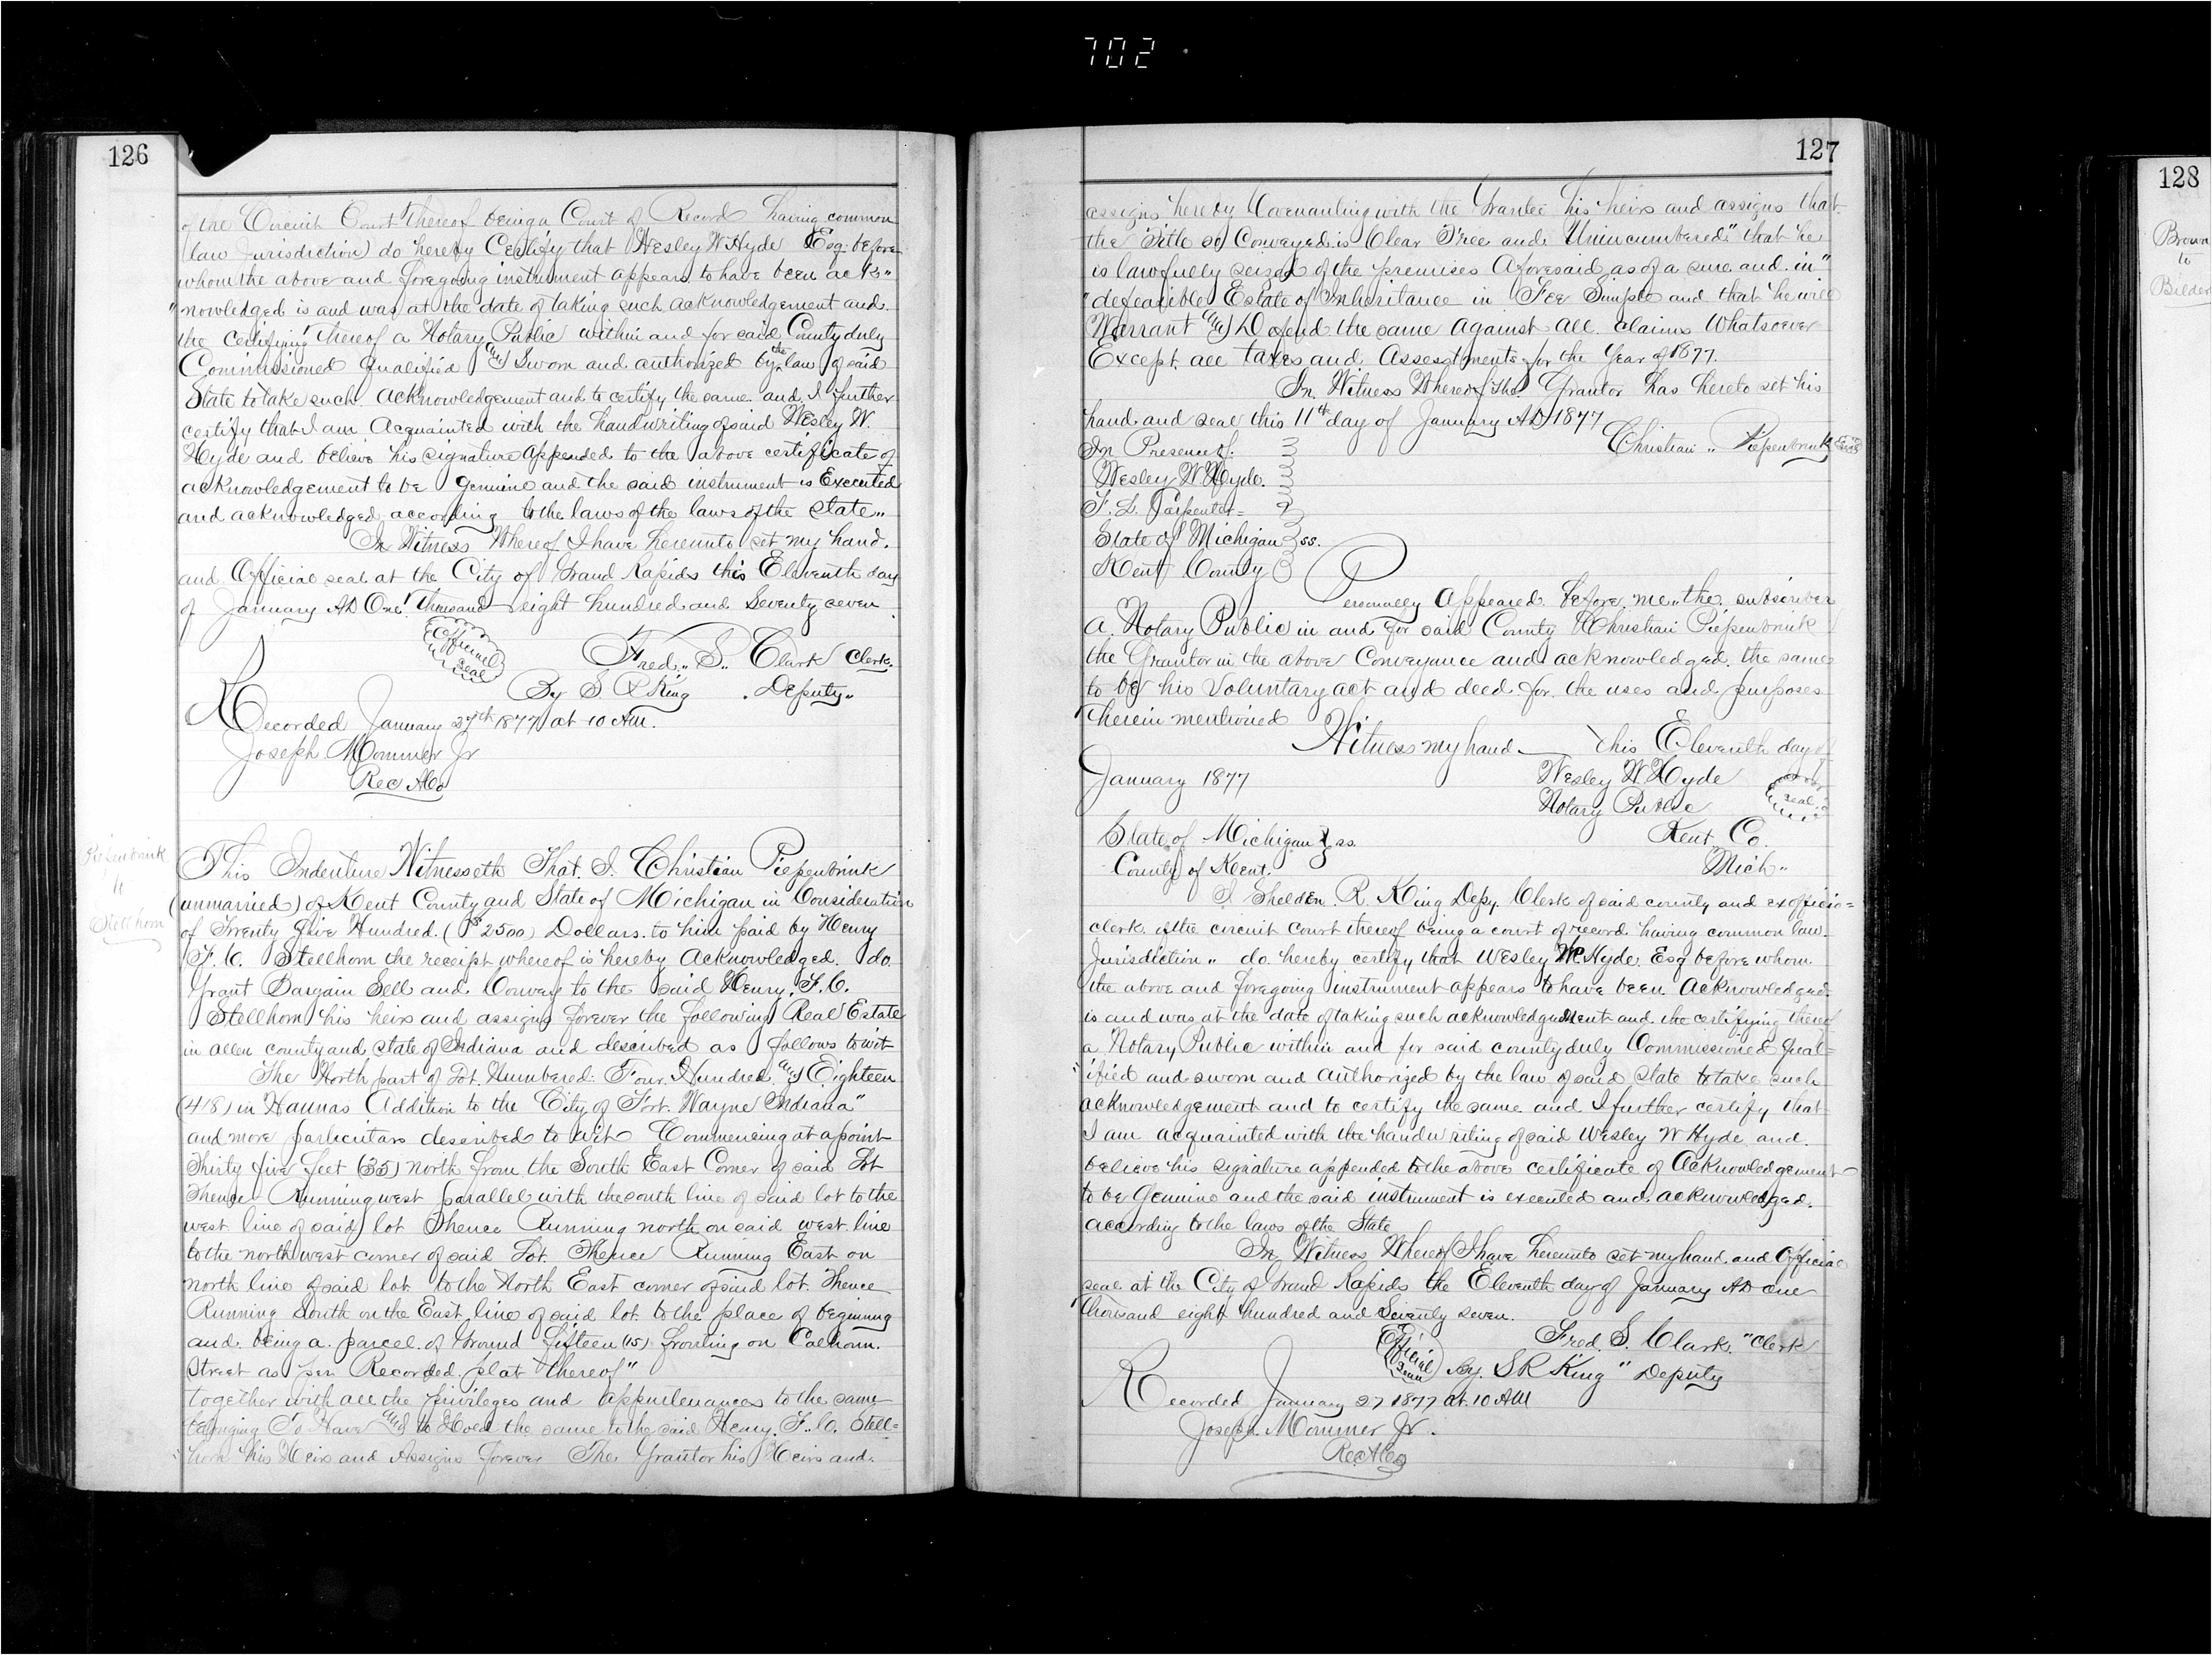 702
126
of the Circuit Court thereof being a Court of Record having common
law Jurisdiction) do hereby Certify that Wesley W Hyde Esq. before
whom the above and foregoing instrument appears to have been ack"
"nowledged is and was at the date of taking such acknowledgement and
the certifying thereof a Notary Public within and for said County duly
Commissioned qualified and Sworn and authorized by the law of said
State to take such acknowledgement and to certify the same and I further
certify that I am Acquainted with the handwriting of said Wesley W.
Hyde and believe his signature appended to the above certificate of
acknowledgement to be genuine and the said instrument is Executed
and acknowledged according to the laws of the laws of the State"
In Witness Whereof I have hereunto set my hand.
and Official seal at the City of Grand Rapids this Eleventh day
of January AD One Thousand eight hundred and Seventy seven
Official seal
Fred,, S,, Clark Clerk.
By S R King . Deputy"
Recorded January 27th 1877 at 10 AM.
Joseph Mommer Jr
Rec ACo
Piepenbrink
to
Stellhorn
This Indenture Witnesseth That. I. Christian Piepenbrink
(unmarried) of Kent County and State of Michigan in Consideration
of Twenty five Hundred. ($2500) Dollars. to him paid by Henry
F. C. Stellhorn the receipt whereof is hereby Acknowledged. do
Grant Bargain Sell and Convey to the said Henry. F. C.
Stellhorn his heirs and assigns forever the following Real Estate
in allen county and state of Indiana and described as follows to wit
The North part of Lot. Numbered. Four. Hundred and Eighteen
(418) in Hannas Addition to the City of Fort. Wayne Indiana"
and more particulars described to wit Commencing at a point
Thirty five feet (35) north from the South East Corner of said Lot
Thence Running west parallel with the south line of said lot to the
west line of said lot Thence Running north on said west line
to the north west corner of said Lot. Thence Running East on
north line of said lot to the North East corner of said lot. Thence
Running South on the East line of said lot to the place of beginning
and being a parcel of Ground fifteen (15) fronting on Calhoun.
Street as per Recorded plat thereof"
together with all the privileges and appurtenances to the same
belonging To Have and to Hold the same to the said Henry. F. C. Stell=
"horn his Heirs and Assigns forever The Grantor his Heirs and
127
assigns hereby Covenanting with the Grantee his heirs and assigns that
the Title so Conveyed is Clear Free and Unincumbered" that he
is lawfully seized of the premises Aforesaid as of a sure and in"
"defeasible Estate of Inheritance in Fee Simple and that he will
Warrant and Defend the same Against all claims Whatsoever
Except all taxes and Assesstments for the Year of 1877.
In Witness Whereof The Grantor has hereto set his
hand and seal this 11th day of January AD 1877
In Presence of.
Christian ,, Piepenbrink
Wesley W Hyde.
F. L. Carpenter=
State of Michigan ss.
Kent County
Personally Appeared before me the subscriber
a Notary Public in and for said County Christian Piepenbrink
the Grantor in the above Conveyance and acknowledged the same
to be his Voluntary act and deed for the uses and purposes
therein mentioned
Witness my hand this Eleventh day of
January 1877
Wesley W Hyde
Notary Public
seal
Kent Co.
Mich"
State of Michigan ss.
County of Kent.
I Shelden R. King Depy. Clerk of said county and exofficio=
clerk of the circuit court thereof being a court of record having common law
Jurisdiction,, do hereby certify that Wesley W. Hyde. Esq before whom
the above and foregoing instrument appears to have been Acknowledged.
is and was at the date of taking such acknowledgement and the certifying thereof
a Notary Public within and for said county duly Commissioned Qual=
"ified and sworn and authorized by the law of said State to take such
acknowledgement and to certify the same and I further certify that
I am acquainted with the handwriting of said Wesley W Hyde and
believe his signature appended to the above certificate of Acknowledgement
to be Genuine and the said instrument is executed and acknowledged.
according to the laws of the State
In Witness Whereof I have hereunto set my hand and Official
seal at the City of Grand Rapids the Eleventh day of January AD one
thousand eight hundred and Seventy seven.
Official Seal
Fred. S. Clark. "Clerk
By. S R King" Deputy
Recorded January 27 1877 at 10 AM
Joseph Mommer Jr.
Rec ACo
128
Brown
to